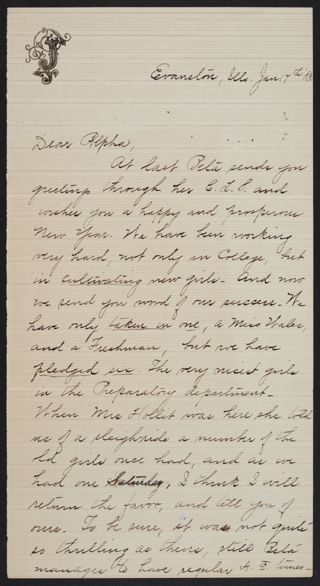 Evanston, Ills. Jan. 7th
Dear Alpha,
At last Beta sends you
greeting through her C. L. S. and
wishes you a happy and prosperous
New Year. We have been working
very hard, not only in College, but
in cultivating new girls - And now
we send you word of our success - We
have only taken in one, a Miss
and a Freshman, but we have
pledged six. The very nicest girls
in the Preparatory department -
When Mrs was here she told
us of a sleighride a number of the
old girls once had, and as we
had one Saturday, I think I will
return the favor, and tell you of
ours. To be sure, it was not quite
so thrilling as theirs, still Beta
manages to have regular A. F times -